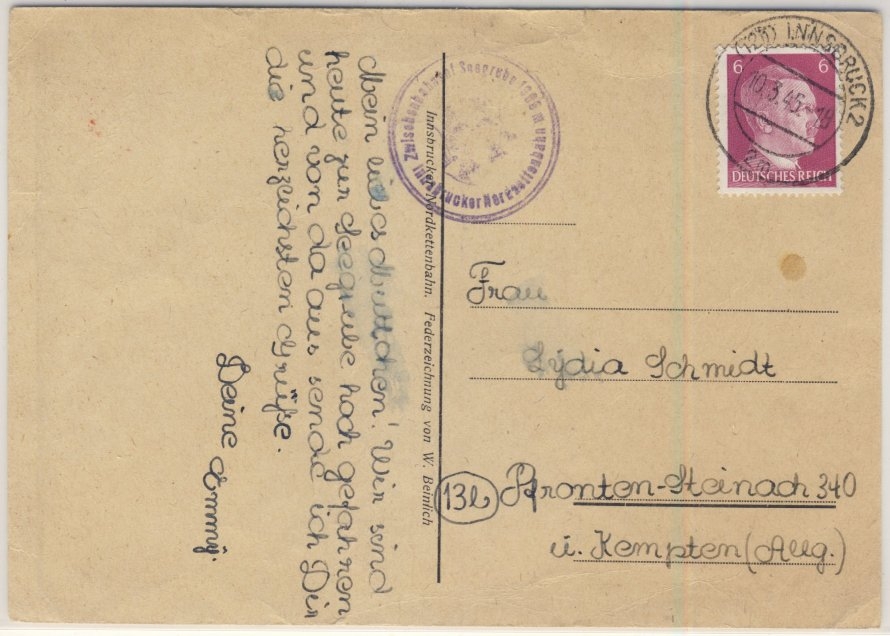 Mein liebes Muttchen! Wir sind
heute zur Seegrube hoch gefahren
und von da aus sende ich Dir
die herzlichsten Grüße.
Deine Emmy.
Innsbrucker Nordkettenbahn. Federzeichnung von W. Beinlich
Zwischenbahnhof Seegrube 1905 m
Innsbrucker Nordkettenbahn
(12b) INNSBRUCK 2
10.3.45.-18
6 6
DEUTSCHES REICH
Frau
Lydia Schmidt
13b Pfronten-Steinach 340
ü. Kempten (Allg.)